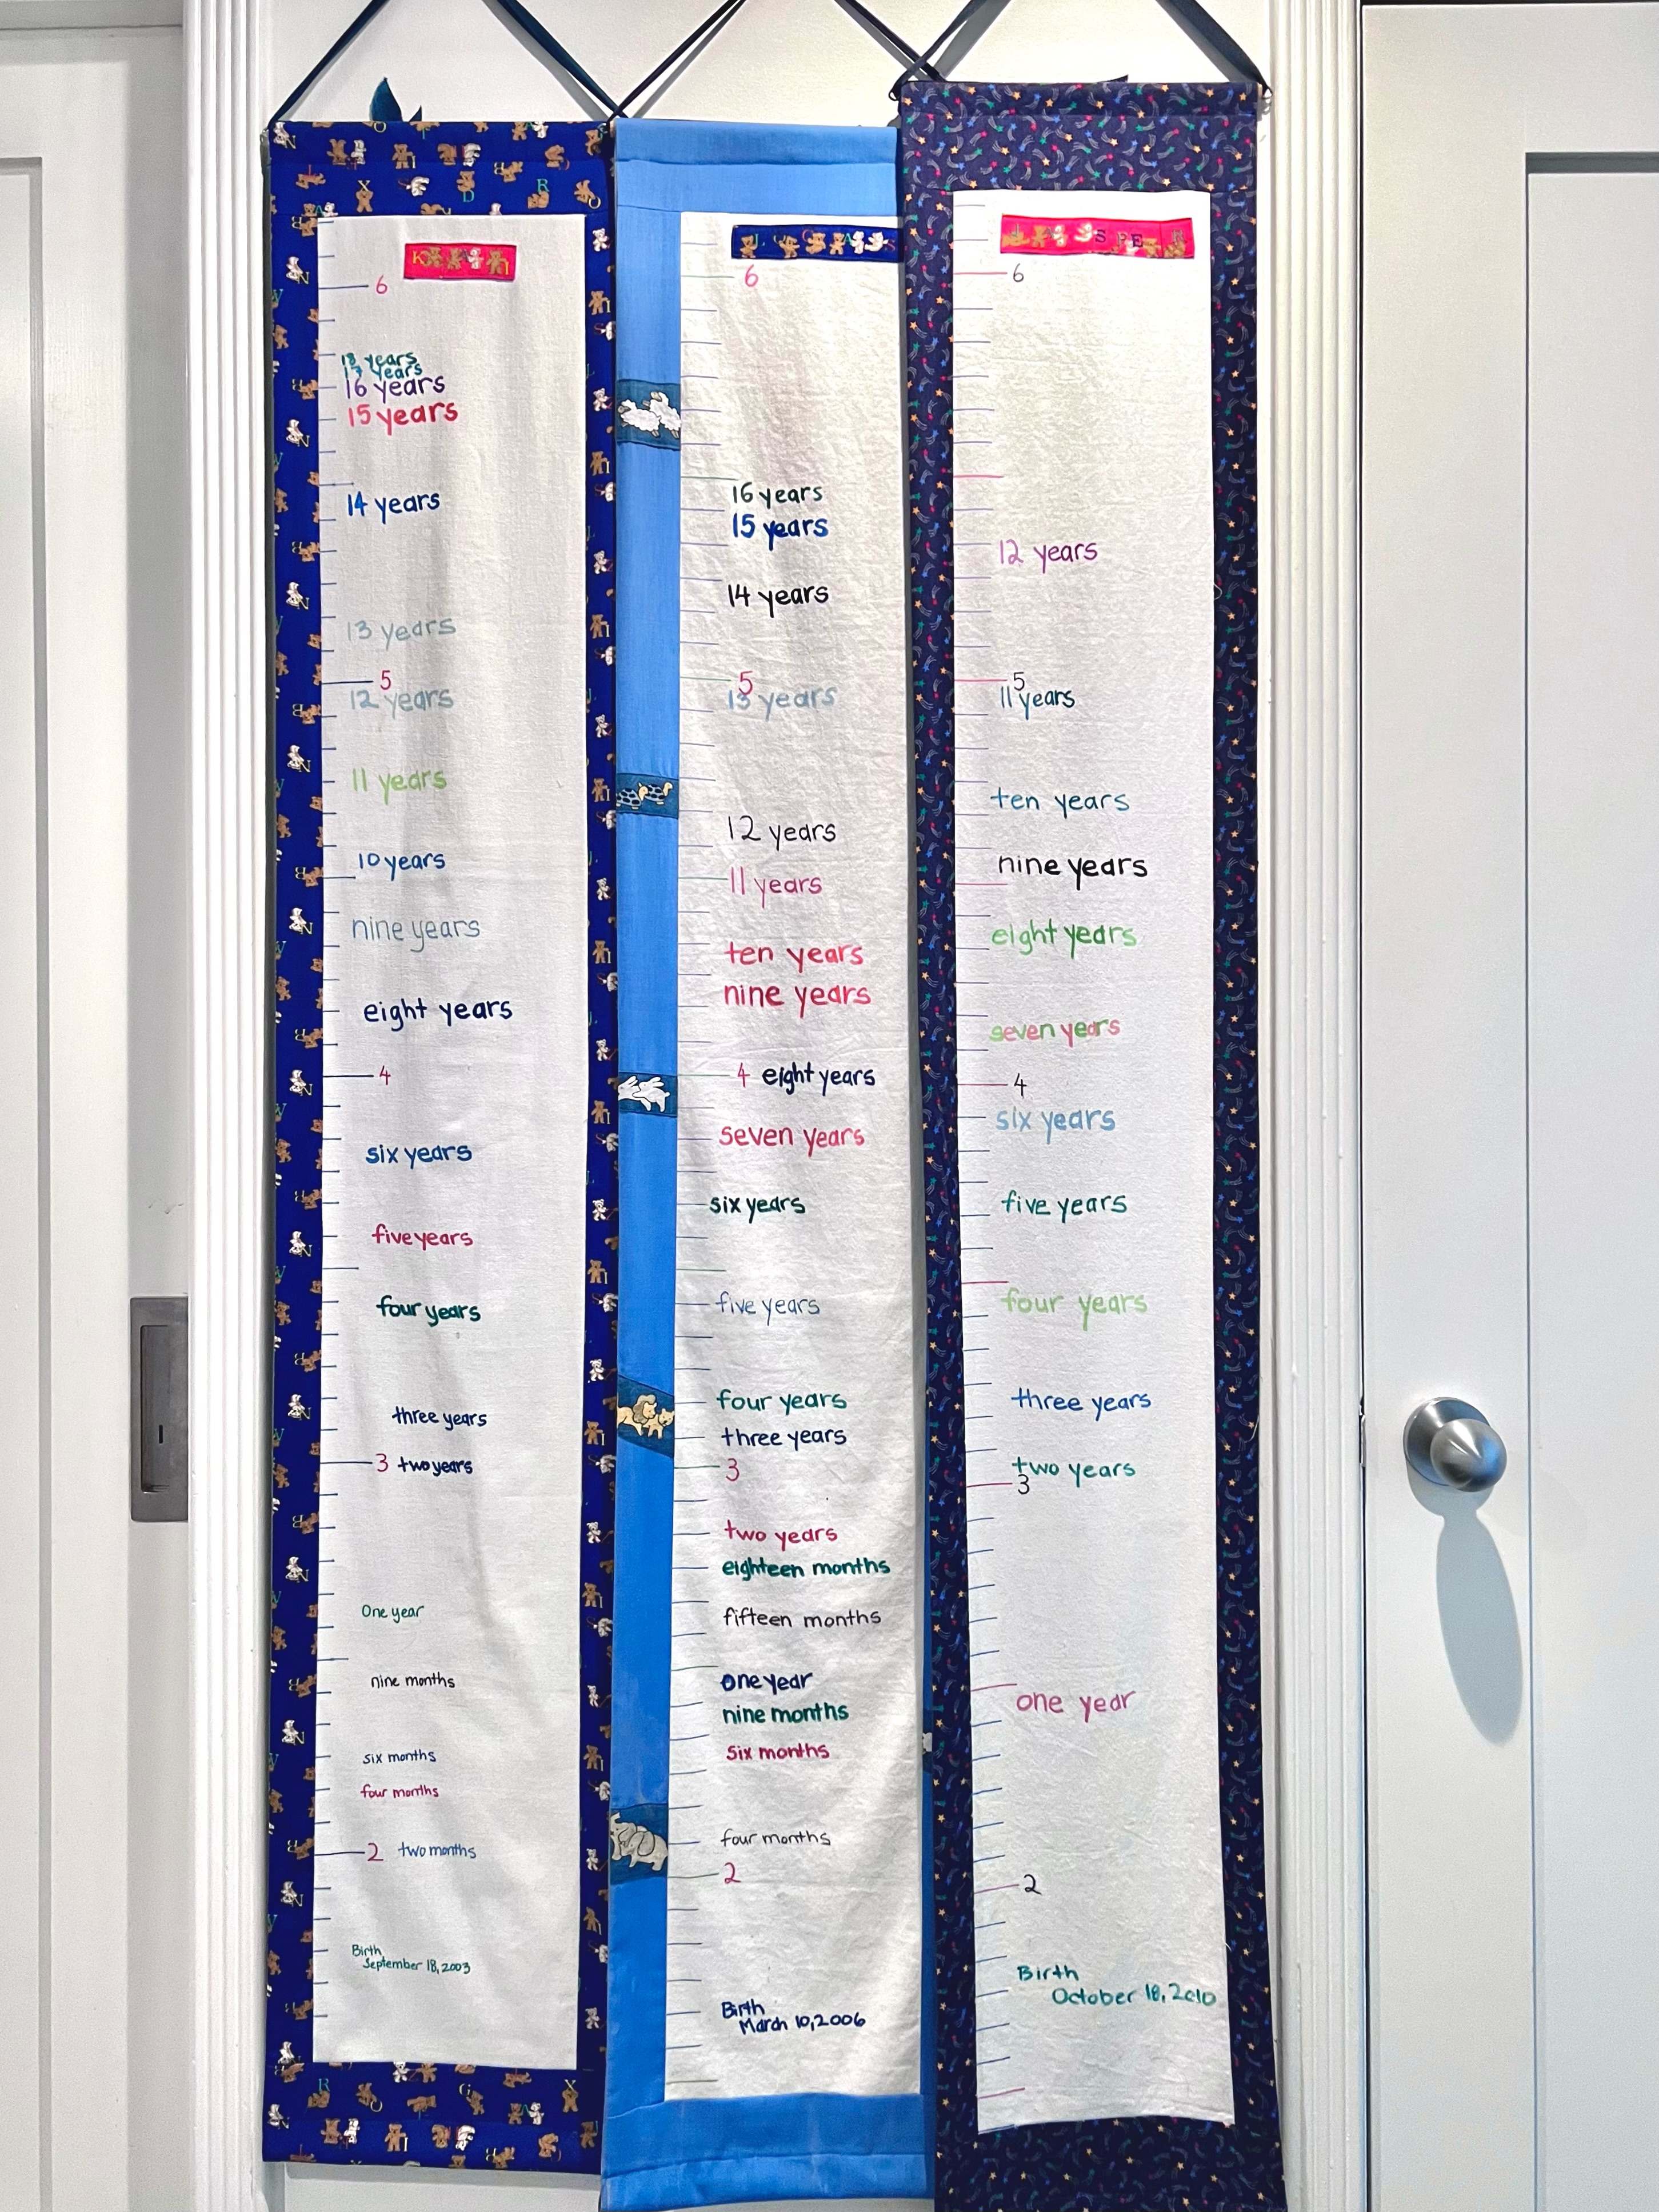 KARI
6
18 years
17 years
16 years
15 years
14 years
13 years
5
12 years
11 years
10 years
nine years
eight years
4
six years
five years
four years
three years
3 two years
One year
nine months
six months
four months
2 two months
Birth
September 18, 2003
6
16 years
15 years
14 years
5
13 years
12 years
11 years
ten years
nine years
4 eight years
seven years
six years
five years
four years
three years
3
two years
eighteen months
fifteen months
one year
nine months
six months
four months
2
Birth
March 10, 2006
6
12 years
5
11 years
ten years
nine years
eight years
seven years
4
six years
five years
four years
three years
two years
3
one year
2
Birth
October 18, 2010